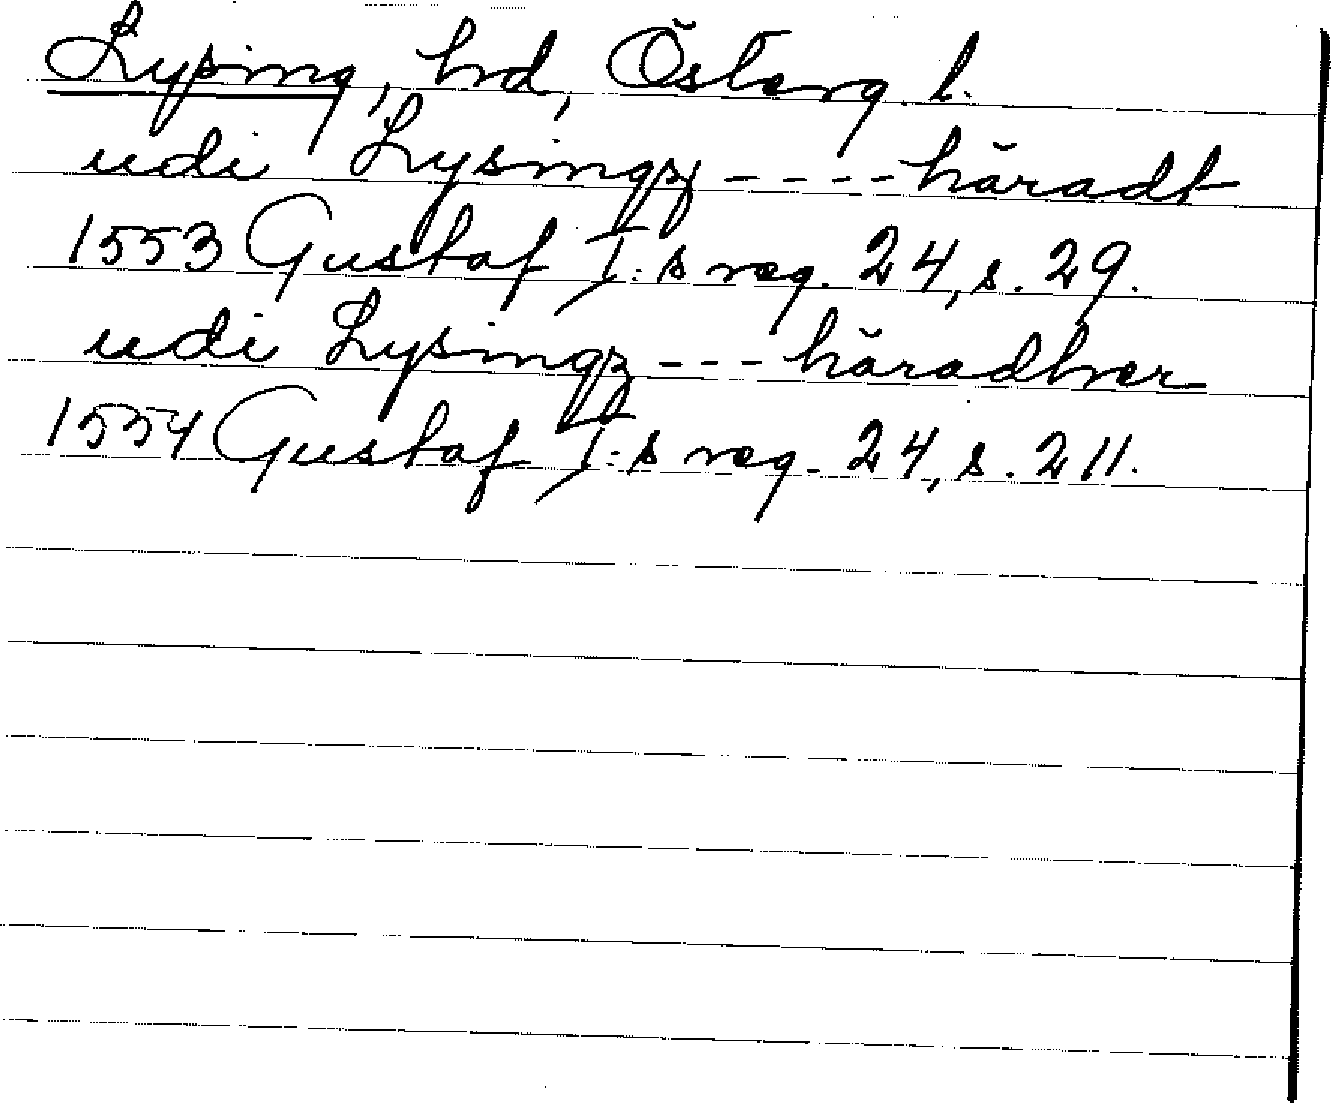 Lysing, hrd, Österg. l.
udi Lysingz ---- häradt
1553 Gustaf I:s reg. 24, s. 29.
udi Lysingz --- häradher
1554 Gustaf I:s reg. 24, s. 211.